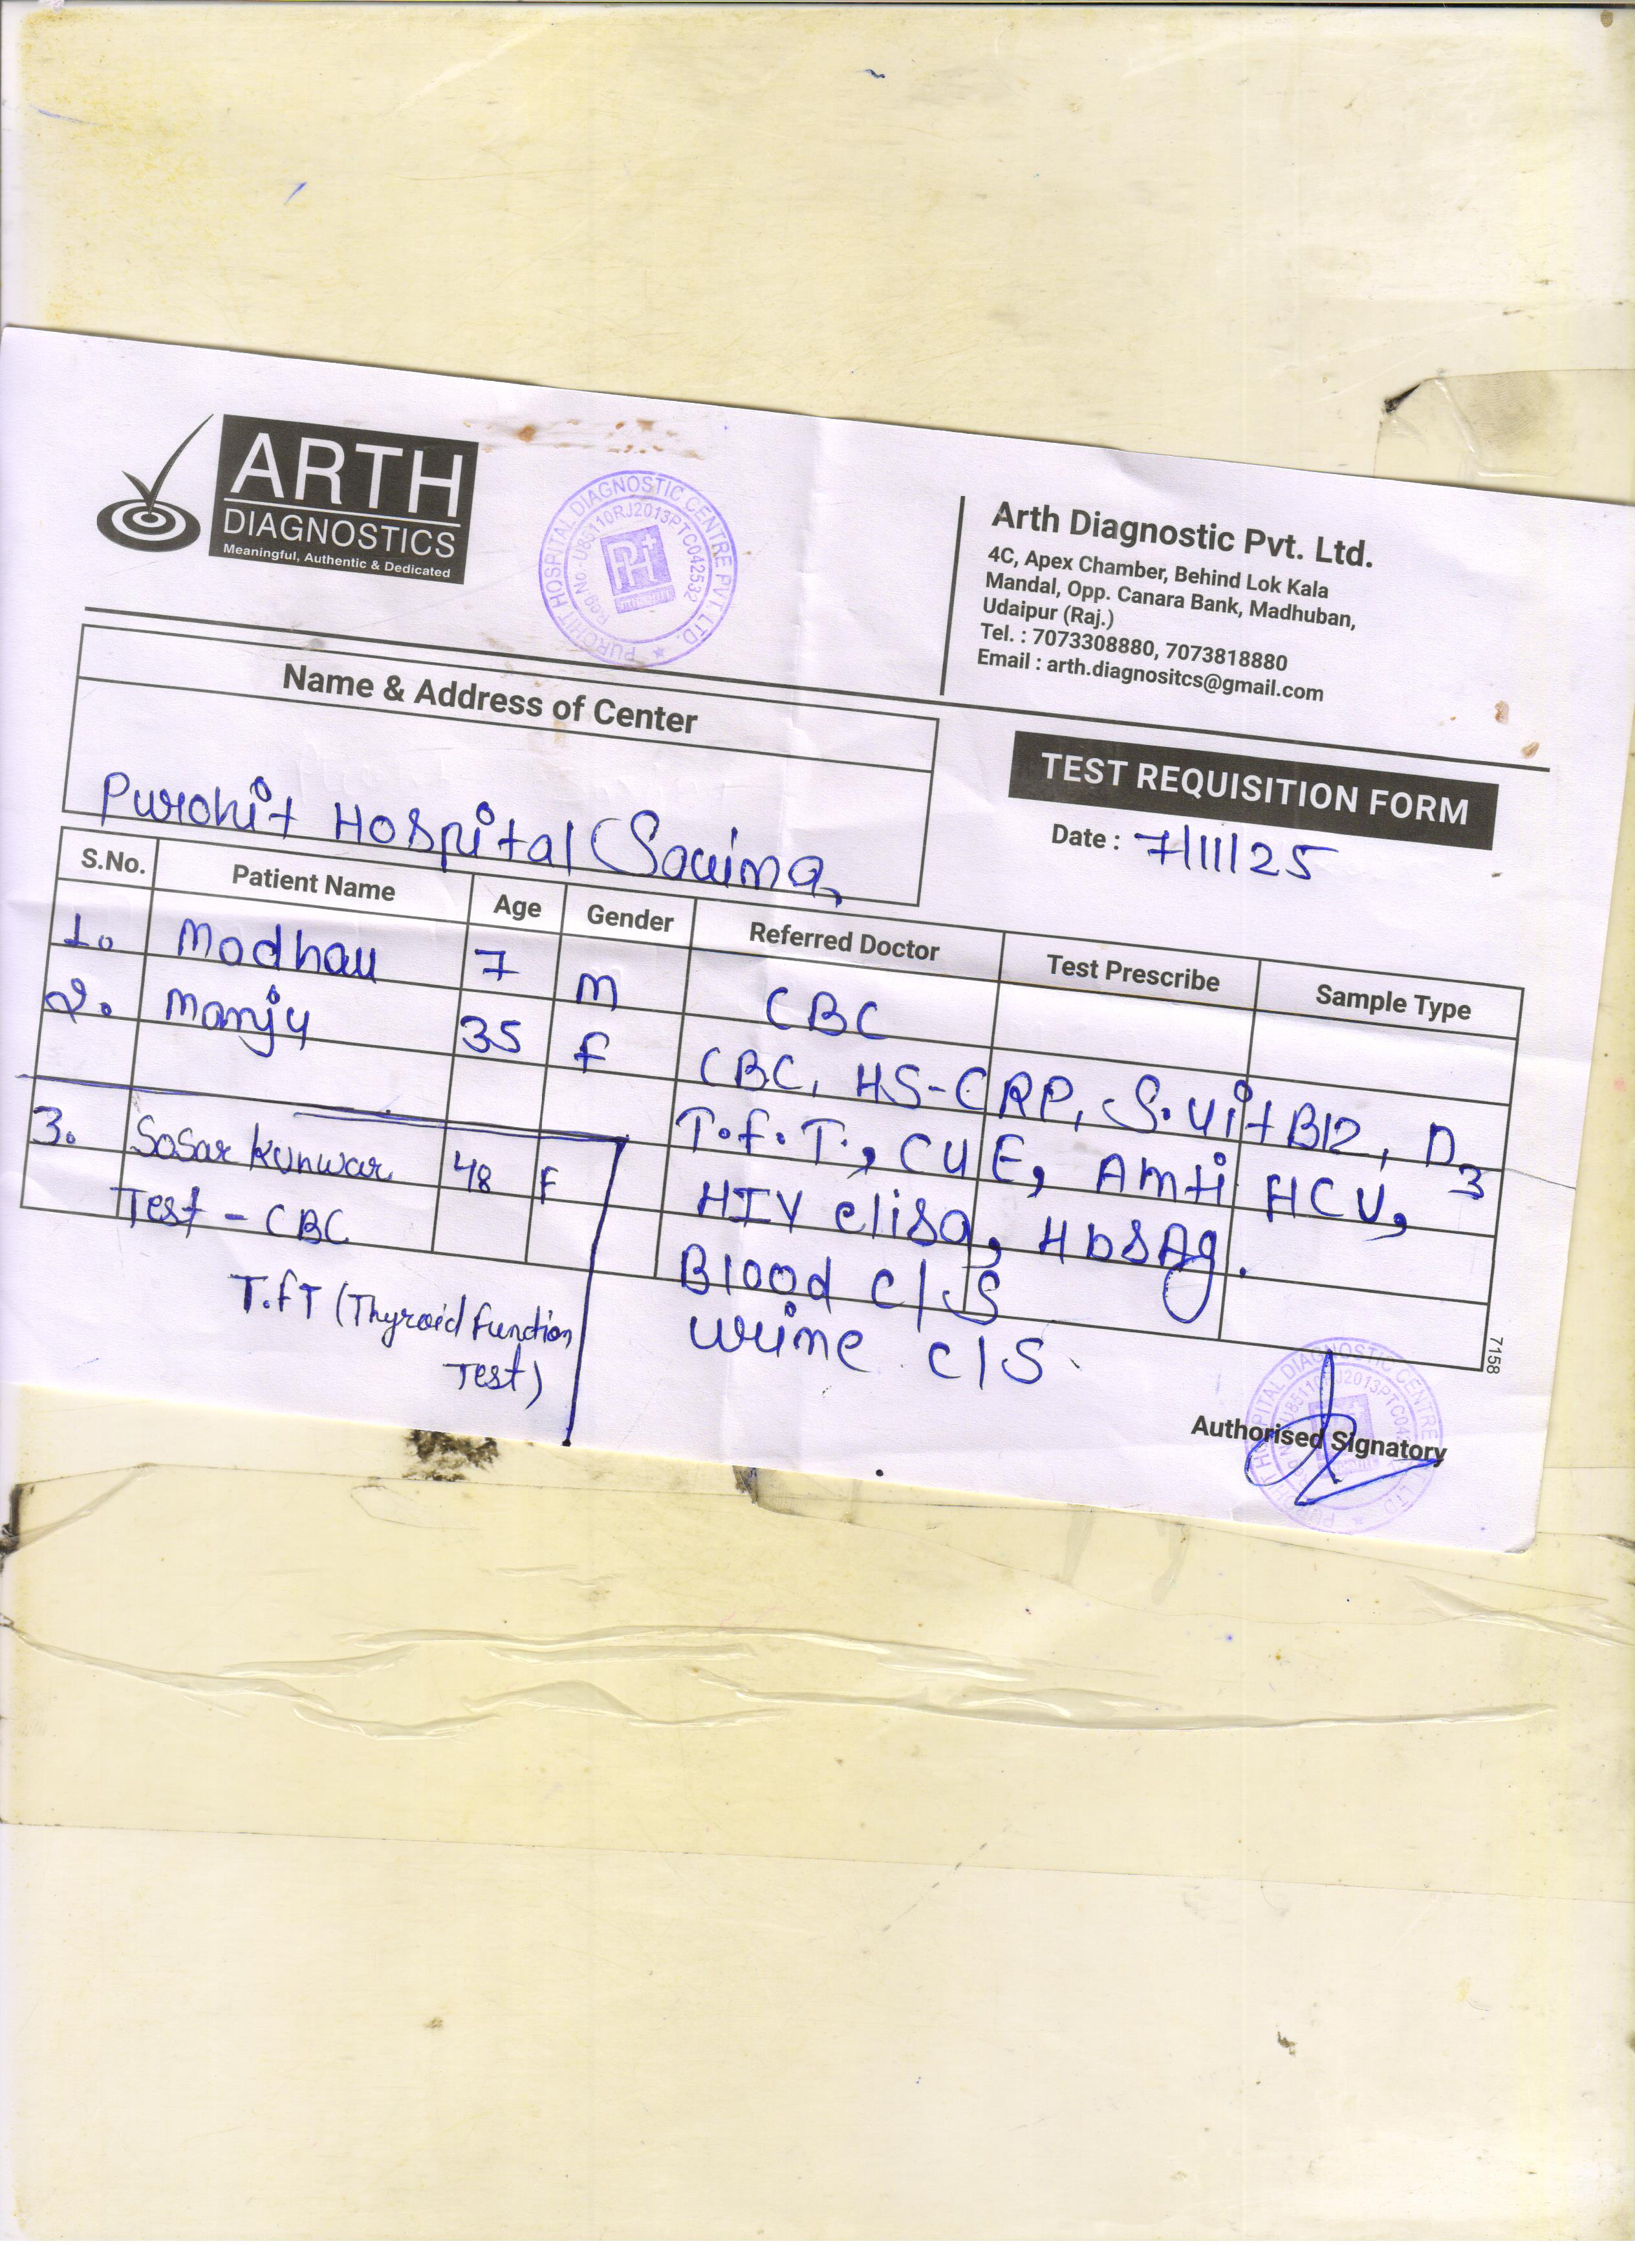 ARTH
DIAGNOSTICS
Meaningful, Authentic & Dedicated
PUROHIT HOSPITAL DIAGNOSTIC CENTRE PVT. LTD.
Reg No.-U85110RJ2013PTC042532
PH
Arth Diagnostic Pvt. Ltd.
4C, Apex Chamber, Behind Lok Kala
Mandal, Opp. Canara Bank, Madhuban,
Udaipur (Raj.)
Tel. : 7073308880, 7073818880
Email : arth.diagnositcs@gmail.com
Name & Address of Center
Purohit Hospital (Savina,
TEST REQUISITION FORM
Date : 7/11/25
S.No. Patient Name Age Gender Referred Doctor Test Prescribe Sample Type
1. Madhav 7 M CBC
2. Manju 35 F CBC, HS-CRP, S.vit B12, D3
T.f.T., CUE, Anti HCV,
HIV elisa, HbsAg.
Blood C/S
Urine C/S
3. Sosar Kunwar 48 F
Test - CBC
T.fT (Thyroid function
Test)
7158
Authorised Signatory